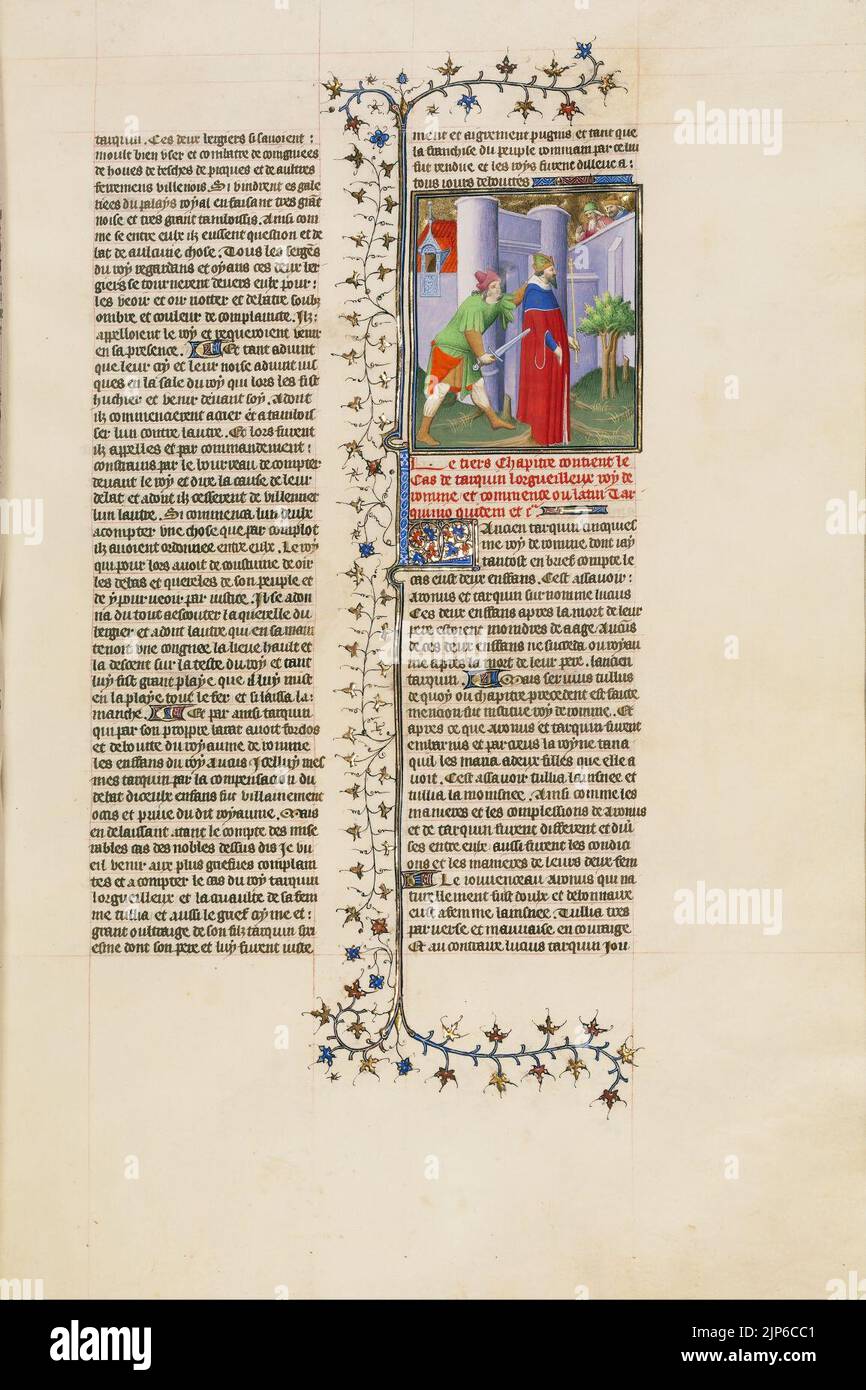 tarquin. Ces deux bergiers si sauoient :
moult bien vser et combatre de coingnees
de houes de besches de picques et de aultres
ferremens villenois. Si vindrent es gale
ries du palays royal en faisant tres grāt
noise et tres grant tamboissis. Ainsi com
me se entre eulx ilz eussent question et de
bat de aulcune chose. Tous les sergēs
du roy regardans et oyans ces deux ber
giers se tournerent deuers eulx pour :
les veoir et oir noter et debatre soubz
ombre et couleur de complainte. Ilz :
appelloient le roy et requeroient venir
en sa presence. Et tant aduint
que leur cry et leur noise aduint ius
ques en la sale du roy qui lors les fist
huchier et venir deuant soy. Adont
ilz commencerent a crier et a tambois
ser lun contre lautre. Et lors furent
ilz appelles et par commandement :
constrains par le bourreau de compter
deuant le roy et dire la cause de leur
debat et adont ilz cesserent de villenner
lun lautre. Si commenca lun deulx
a compter vne chose que par complot
ilz auoient ordonnee entre eulx. Le roy
qui pour lors auoit de coustume de oir
les debas et quereles de son peuple et
de y pourueoir par iustice. Il se adon
na du tout a escouter la querelle du
bergier et adont lautre qui en sa main
tenoit vne congnee la lieue hault et
la descent sur la teste du roy et tant
luy fist grant playe que il luy mist
en la playe tout le fer et si laissa la :
manche. Et par ainsi tarquin
qui par son propre barat auoit fordos
et deboute du royaume de romme
les enffans du roy ancus icelluy mes
mes tarquin par la compensacion du
debat diceulx enfans fut villainement
occis et priue du dit royaume. Mais
en delaissant atant le compte des mise
rables cas des nobles dessus dis Je vu
eil venir aux plus griefues complain
tes et a compter le cas du roy tarquin
lorgueilleux et la cruaulte de sa fem
me tullia et aussi le grief cryme et :
grant oultraige de son filz tarquin sex
esme dont son pere et luy furent iuste
ment et aigrement pugnis et tant que
la franchise du peuple rommain par ce lui
fut rendue et les roys furent dillecc a :
tous iours deboutes
Le tiers Chapitre contient le
Cas de tarquin lorgueilleux roy de
romme et commence ou latin Tar
quino quidem et cᵃ.
Ancien tarquin cinquies
me roy de romme dont iay
tantost en brief compte le
cas eust deux enffans. Cest assauoir :
Aronus et tarquin surnomme lucius
Ces deux enffans apres la mort de leur
pere estoient moindres de aage Aucūs
de ces deux enffans ne succeda ou royau
me apres la mort de leur pere. lancien
tarquin. Mais seruius tullus
de quoy ou chapitre precedent est faicte
mencion fut institue roy de romme. Et
apres ce que aronus et tarquin furent
embarnis et parcreus la royne tana
quil les maria a deux filles que elle a
uoit. Cest assauoir tullia lainsnee et
tullia la moinsnee. Ainsi comme les
manieres et les complessions de aronus
et de tarquin furent different et diū
ses entre eulx aussi furent les condici
ons et les manieres de leurs deux fem
Le iouuenceau aronus qui na
turellement fust doulx et debonnaire
eust a femme lainsnee. Tullia tres
parverse et mauuaise en couraige
Et au contraire lucius tarquin iou
alamy
alamy
Image ID: 2JP6CC1
www.alamy.com